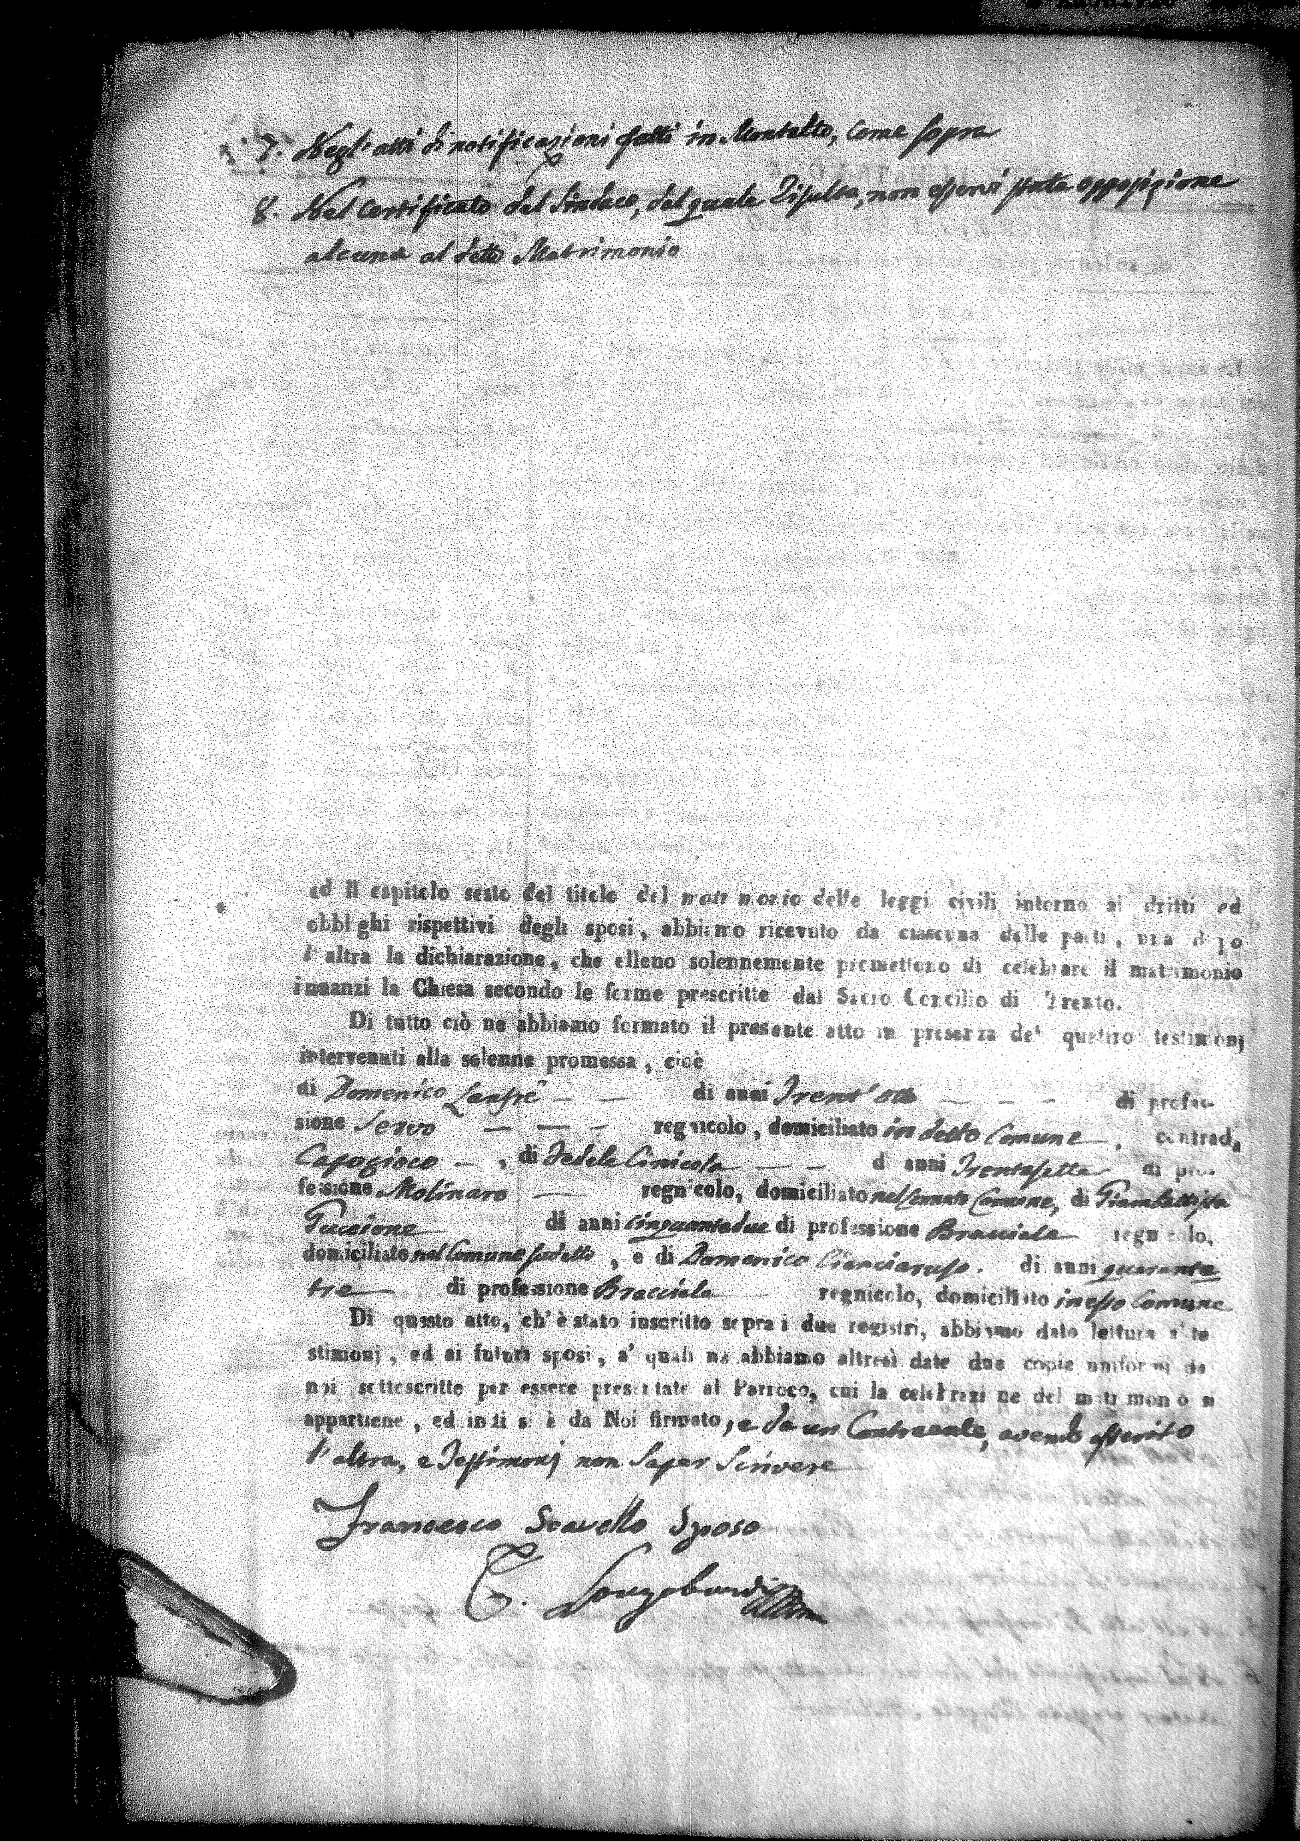 7. Negl'atti di notificazioni fatti in Montalto, come sopra
8. Nel Certificato del Sindaco, dal quale risulta, non essersi stata opposizione
alcuna al detto Matrimonio
ed il capitolo sesto del titolo del matrimonio delle leggi civili intorno ai dritti ed
obblighi rispettivi degli sposi, abbiamo ricevuto da ciascuna delle parti, una dopo
l'altra la dichiarazione, che elleno solennemente promettono di celebrare il matrimonio
innanzi la Chiesa secondo le forme prescritte dal Sacro Concilio di Trento.
Di tutto ciò ne abbiamo formato il presente atto in presenza de' quattro testimonj
intervenuti alla solenne promessa, cioè
di Domenico di anni Trent'otto di profes-
sione Servo regnicolo, domiciliato in detto Comune, contrada
, di Fedele di anni Trentasette di pro-
fessione Molinaro regnicolo, domiciliato nel Comune, di Giambattista
Puccione di anni cinquantadue di professione Bracciale regnicolo,
domiciliato nel Comune sudetto, e di Domenico Cianciaruso. di anni quaranta
tre di professione Bracciale regnicolo, domiciliato in esso Comune
Di questo atto, ch'è stato inscritto sopra i due registri, abbiamo dato lettura a' te
stimonj, ed ai futuri sposi, a' quali ne abbiamo altresì date due copie uniformi da
noi sottoscritte per essere presentate al Parroco, cui la celebrazione del matrimonio si
appartiene, ed indi si è da Noi firmato, e da un Contraente, avendo asserito
l'altra, e Testimonj non saper scrivere
Francesco Scavello Sposo